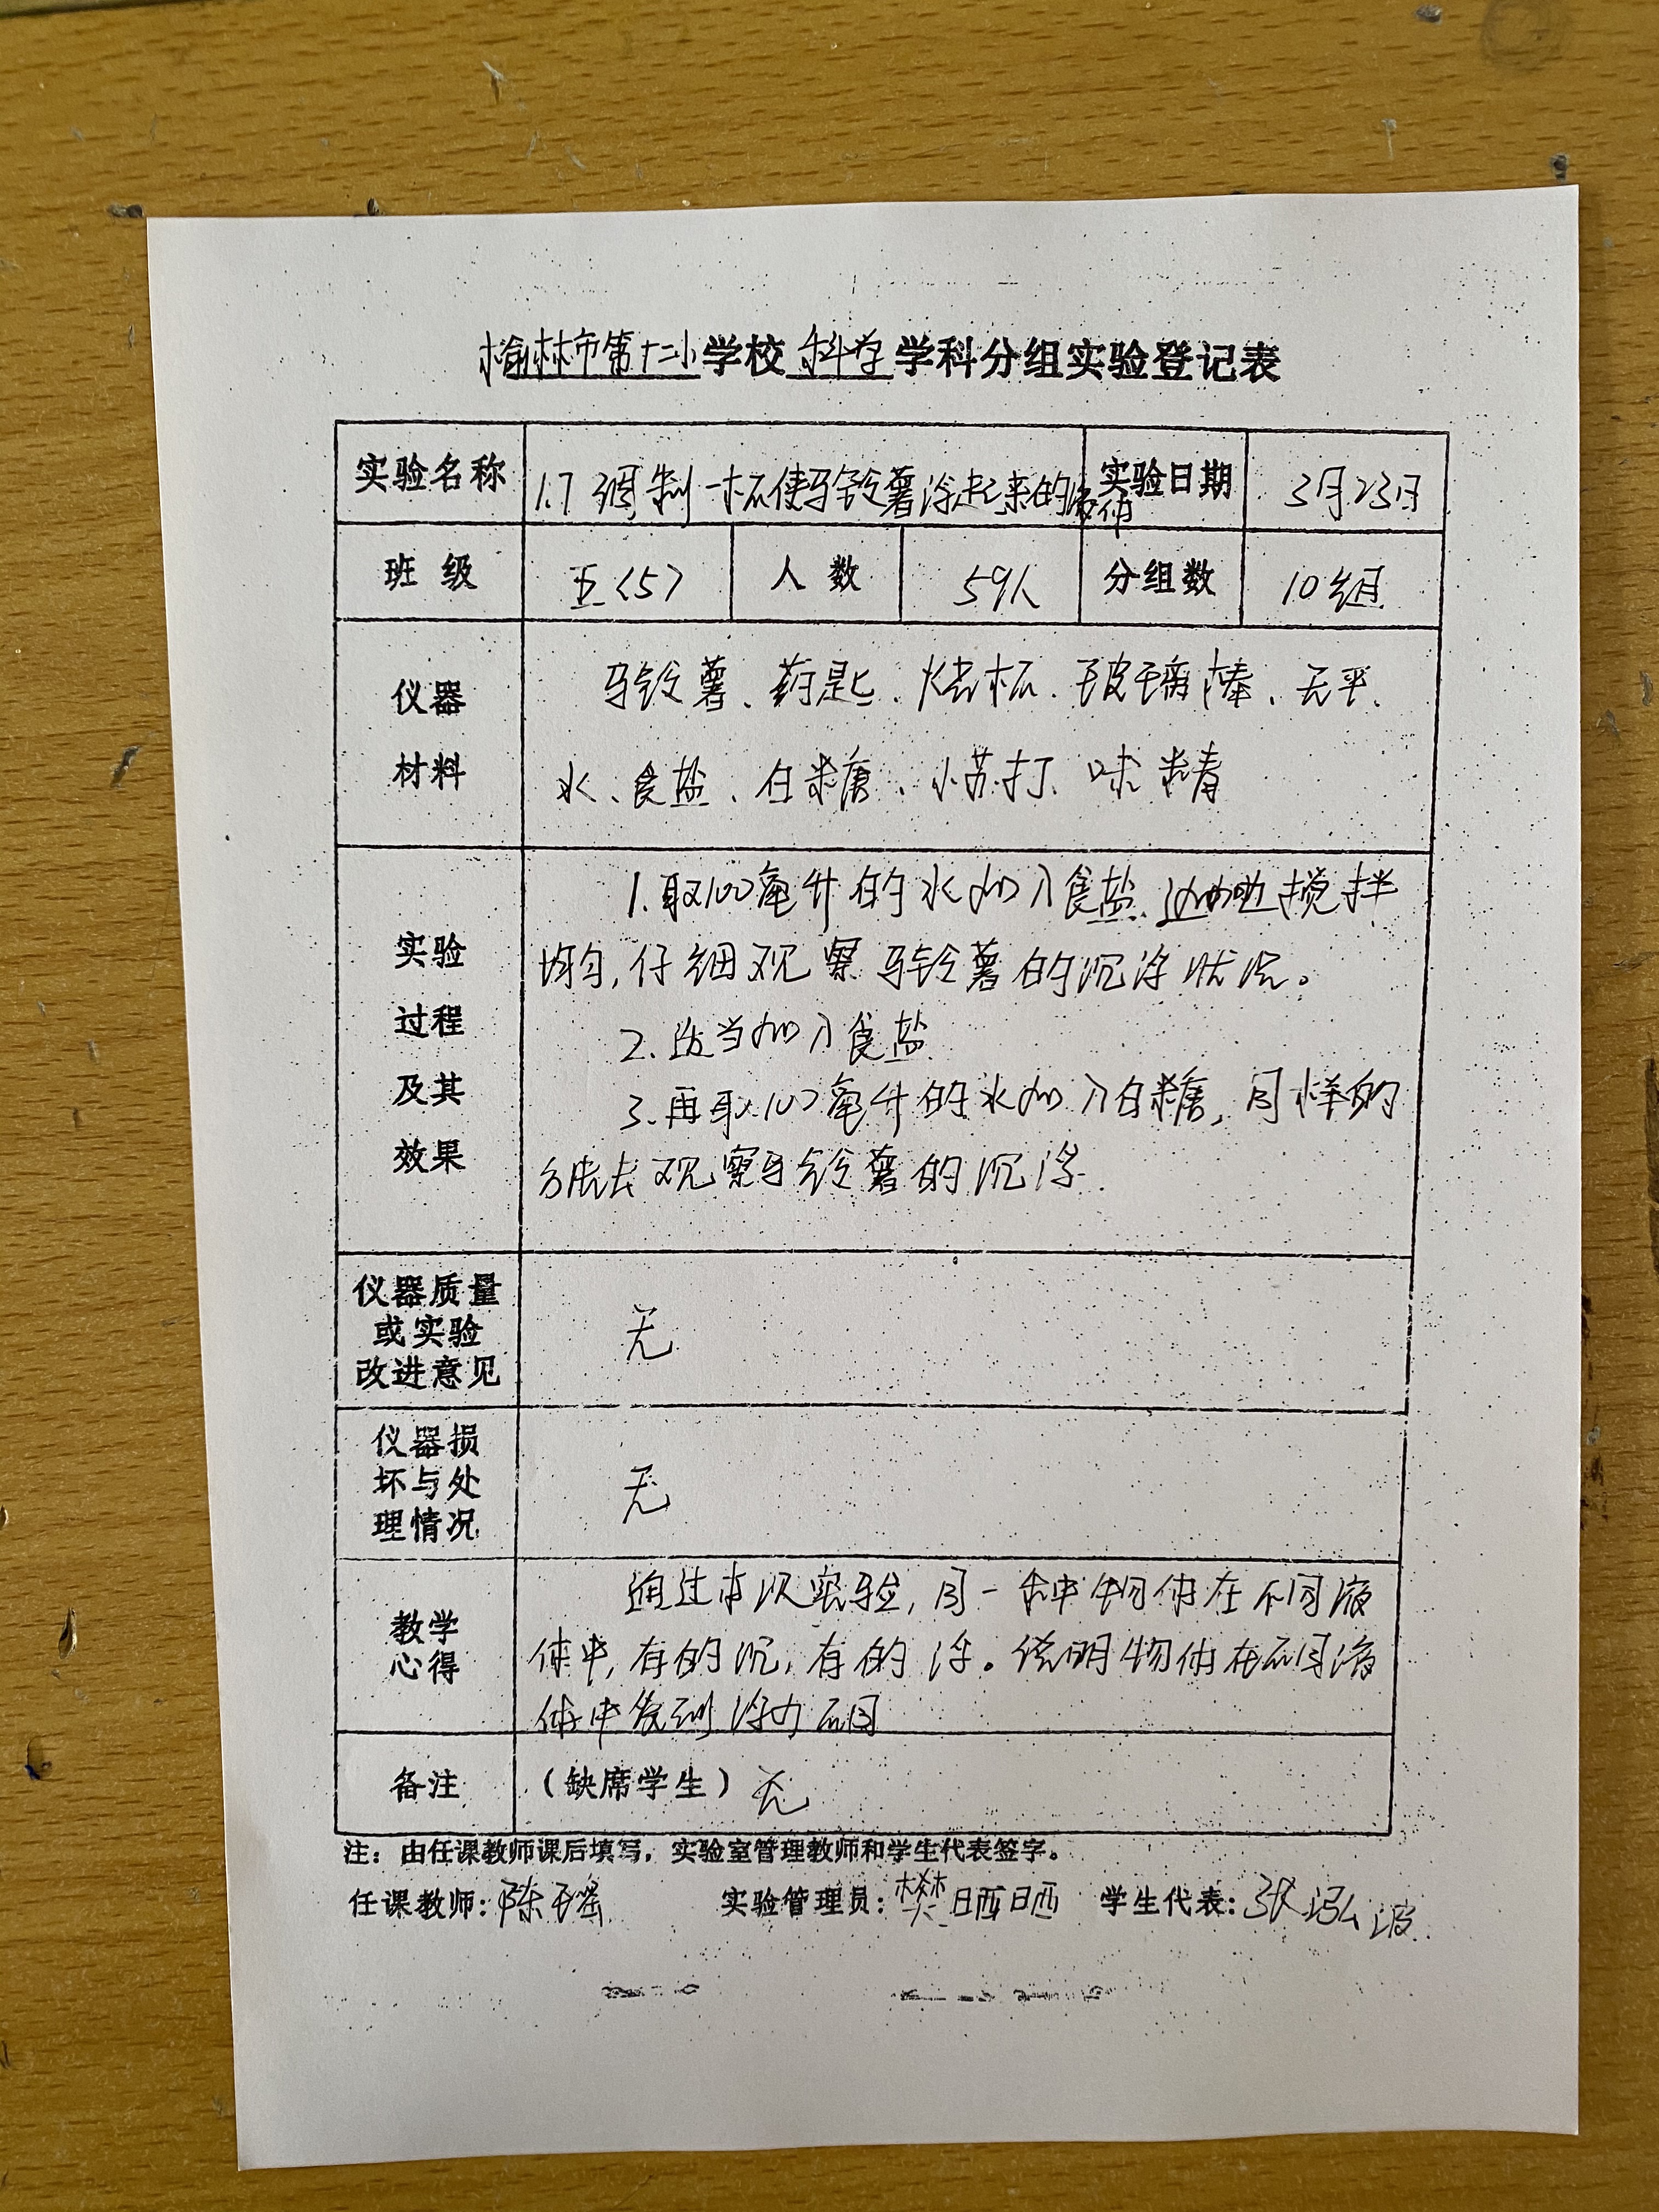 榆林市第十二小学校科学学科分组实验登记表
实验名称 1.7 调制一杯使马铃薯浮起来的液体 实验日期 3月23日
班级 五<5> 人数 59人 分组数 10组
仪器
材料
马铃薯、药匙、烧杯、玻璃棒、天平、
水、食盐、白糖、小苏打、味精
实验
过程
及其
效果
1.取100毫升的水加入食盐、边加边搅拌
均匀,仔细观察马铃薯的沉浮状况。
2.适当加入食盐
3.再取100毫升的水加入白糖,同样的
方法去观察马铃薯的沉浮.
仪器质量
或实验
改进意见
无
仪器损
坏与处
理情况
无
教学
心得
通过本次实验,同一种物体在不同液
体中,有的沉,有的浮。说明物体在不同液
体中受到浮力不同
备注 (缺席学生) 无
注:由任课教师课后填写,实验室管理教师和学生代表签字。
任课教师:陈瑶 实验管理员:樊晒晒 学生代表:张泓波